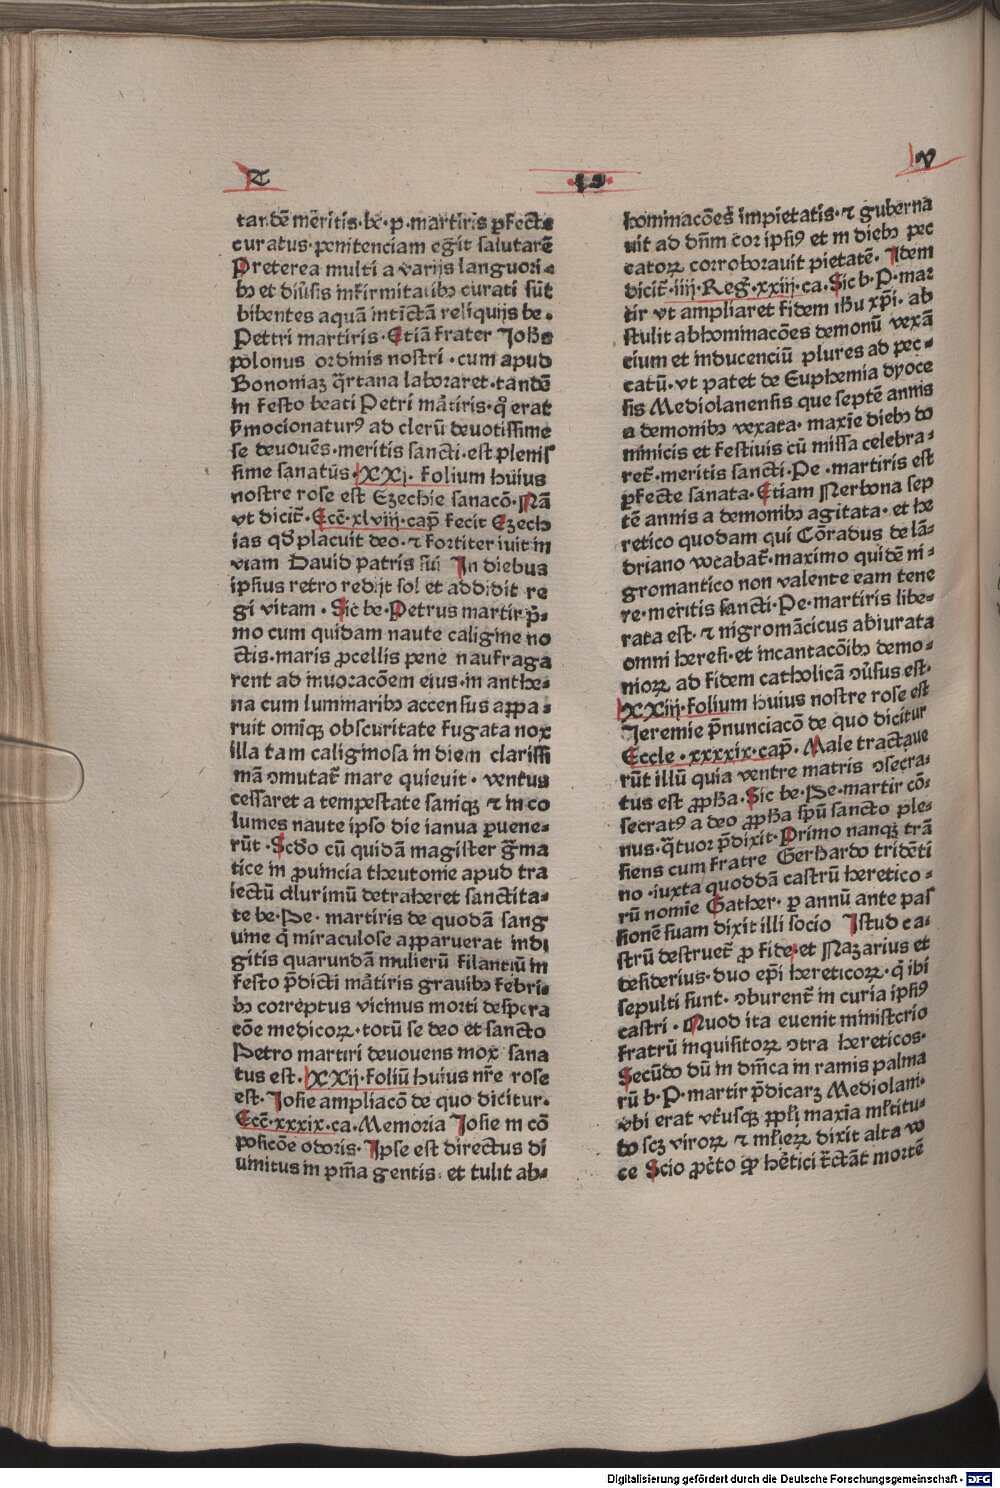 T
V
tandē meritis·bt̄·p·martiris ꝑfecte
curatus·penitenciam egit salutarē
Preterea multi a varijs languori-
bꝫ et diūsis infirmitatibꝫ curati sūt
bibentes aquā intictā reliquijs be·
Pettri martiris·Etiā frater Johēs
polonus ordinis nostri·cum apud
Bononiaꝫ q̄rtana laboraret·tandē
in festo beati Petri mārtiris·q̄ erat
ꝓmocionaturꝰ ad clerū deuotissime
se deuouēs·meritis sancti·est plenis
sime sanatus·XXj·folium huius
nostre rose est Ezechie sanacō·Nā
vt dicit̄·Ecc̄·xlviij·cap̄ fecit Ezech
ias qd̄ placuit deo·⁊ fortiter iuit in
viam Dauid patris sui In diebus
ipsius retro redijt sol et addidit re
gi vitam·Sic be·Petrus martir p̄-
mo cum quidam naute caligine no
ctis·maris ꝓcellis pene naufraga
rent ad inuocacōem eius·in anthe-
na cum luminaribꝫ accensius appa-
ruit omīqꝫ obscuritate fugata nox
illa tam caliginosa in diem clarissi
mā ꝯmutat̄ mare quieuit·ventus
cessaret a tempestate saniqꝫ ⁊ in co
lumes naute ipso die ianua ꝑuene-
rūt·Scd̄o cū quidā magister grāma
tice in ꝓuincia theutonie apud tra
iectū plurimū detraheret sanctita-
te be·Pe·martiris de quodā sang
uine q̄ miraculose apparuerat indi
gitis quarundā mulierū filantiū in
festo p̄dicti mārtiris grauibꝫ febri-
bꝫ correptus vicinus morti despera
cōe medicoꝝ·totū se deo et sancto
Petro martiri deuouens mox sana
tus est·XXij·foliū huius nr̄e rose
est·Josie ampliacō de quo dicitur·
Ecc̄·xxxix·ca·Memoria Josie in cō
posicōe odoris·Ipse est directus di
uinitus in pm̄a gentis·et tulit ab-
hominacōes impietatis·⁊ guberna
uit ad dn̄m cor ipsiꝰ et in diebꝫ pec
catoꝝ corroborauit pietatē·Idem
dicit̄·iiij·Reḡ·xxiij·ca·Sic b·P·mar
tir vt ampliaret fidem ihū xp̄i·ab
stulit abhominacōes demonū vexā
cium et inducenciū plures ad pec-
catū·vt patet de Euphemia dyoce
sis Mediolanensis que septē annis
a demonibꝫ vexata·maxīe diebꝫ do
minicis et festiuis cū missa celebra-
ret̄·meritis sancti·Pe·martiris est
ꝑfecte sanata·Etiam Nerbona sep
tē annis a demonibꝫ agitata·et he
retico quodam qui Cōradus de lā-
driano vocabat̄·maximo quidē ni-
gromantico non valente eam tene
re·meritis sancti·Pe·martiris libe-
rata est·⁊ nigromācicus abiurata
omni heresi·et incantacōibꝫ demo-
nioꝝ ad fidem catholicā ꝯūsus est·
XXiij·folium huius nostre rose est
Jeremie p̄nunciacō de quo dicitur
Eccle·xxxxix·cap̄·Male tractaue
rūt illū quia ventre matris ꝯsecra-
tus est ꝓpha·Sic be·Pe·martir cō-
secratꝰ a deo ꝓpha sp̄u sancto ple-
nus·q̄tuor p̄dixit·Primo nanqꝫ trā
siens cum fratre Gerhardo tridēti
no·iuxta quoddā castrū heretico-
rū nomīe Gather·ꝑ annū ante pas
sionē suam dixit illi socio Istud ca-
strū destruet̄ ꝓ fide·et Nazarius et
desiderius·duo ep̄i hereticoꝝ·q̄ ibi
sepulti sunt·ꝯburent̄ in curia ipsiꝰ
castri·Quod ita euenit ministerio
fratrū inquisitoꝝ ꝯtra hereticos·
Secūdo dū in dm̄ca in ramis palma
rū b·P·martir p̄dicarꝫ Mediolani·
vbi erat vt̄usqꝫ ꝓpl̄i maxīa ml̄titu-
do scꝫ viroꝝ ⁊ ml̄ieꝝ dixit alta vo
ce Scio ꝓc̄to ꝙ hētici t̄ctāt mortē
Digitalisierung gefördert durch die Deutsche Forschungsgemeinschaft - DFG